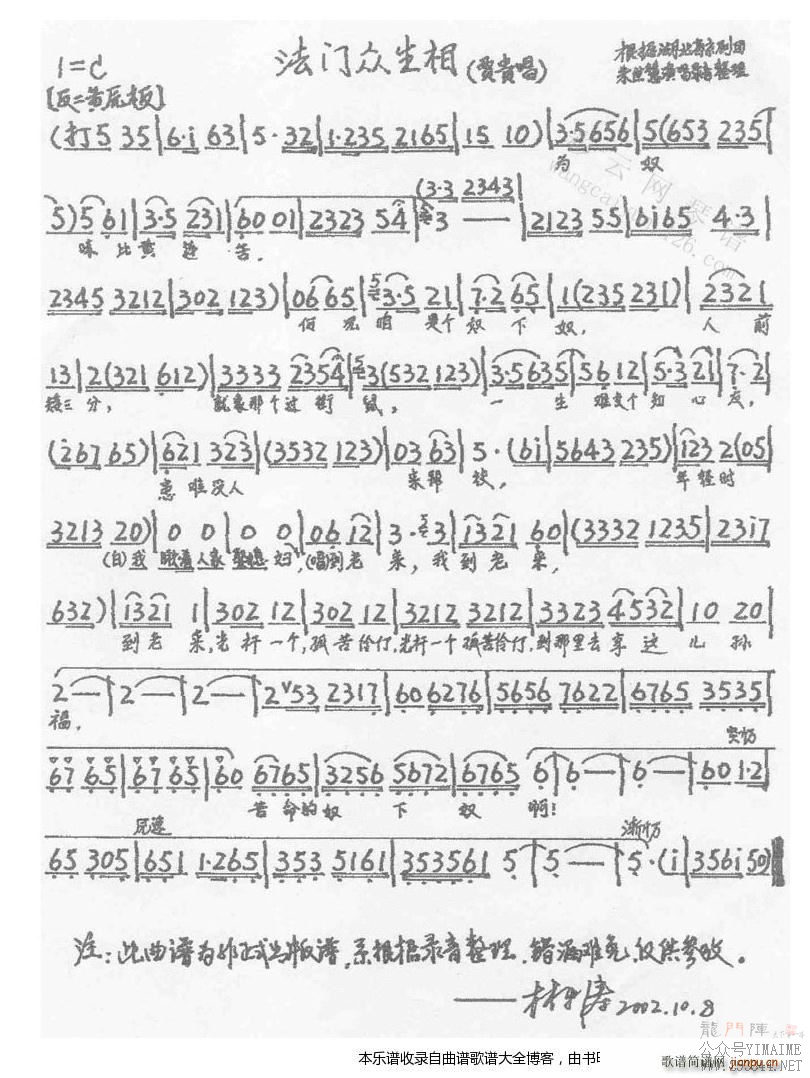 法门众生相(贾贵唱)
1=C
根据湖北省京剧团
朱世慧演唱录音整理
[反二黄原板]
(打5 35|6·i 63|5·32|1·235 2165|15 10)|3·5656|5(653 235|
为 奴
5)5 61|3·5 231|60 01|2323 54|3 —|2123 55|6i65 4·3|
(3·3 2343)
味 比黄 连 苦,
2345 3212|302 123)|06 65|3·5 21|7·2 65|1(235 231)|2321
咱 是个 奴下 奴, 人 前
13|2(321 612)|3333 2354|3(532 123)|3·5635|5612|5·3 21|7·2
矮三 分, 就象那个过街 鼠, 一 生 难交个知心友,
(2676 65)|621 323|(3532 123)|03 63|5·(6i|5643 235)|123 2(05|
患难没人 来帮 扶, 年轻时
3213 20)|0 0|0 0|06 12|3·3|1321 60|(3332 1235|2317
(白)我瞅着人家娶媳妇,(唱)到老 来,我到老 来,
632)|1321 1|302 12|302 12|3212 3212|3323 4532|10 20
到老 来,光杆一个,孤苦伶仃,光杆一个孤苦伶仃,到那里去享这 儿 孙
2—|2—|2—|2√53 2317|60 06276|5656 7622|6765 3535|
福,
突切
67 65|67 65|60 6765|3256 5672|6765 6|6—|6—|60 1·2|
苦命的奴 下 奴 啊!
原速
渐切
65 305|651 1·265|353 5161|353561 5|5—|5·(i|356i 50)‖
注:此曲谱为非正式出版谱,系根据录音整理,错漏难免,仅供参考。
2002.10.8
龍門陣
公众号YIMAIME
本乐谱收录自曲谱歌谱大全博客，由书
歌谱简谱网 jianpu.cn